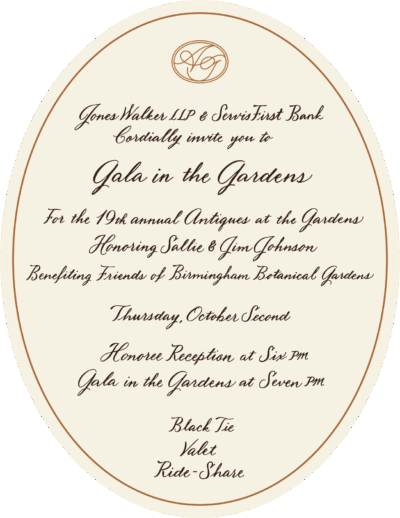 AG
Jones Walker LLP & ServisFirst Bank
Cordially invite you to
Gala in the Gardens
For the 19th annual Antiques at the Gardens
Honoring Sallie & Jim Johnson
Benefiting Friends of Birmingham Botanical Gardens
Thursday, October Second
Honoree Reception at Six PM
Gala in the Gardens at Seven PM
Black Tie
Valet
Ride-Share